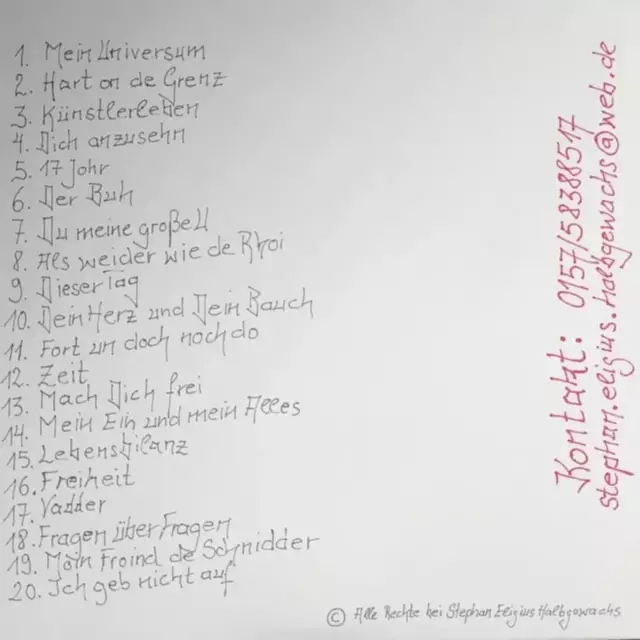 1. Mein Universum
2. Hart on de Grenz
3. Künstlerleben
4. Dich anzusehn
5. 17 Johr
6. Der Buh
7. Du meine große LI
8. Als weider wie de Rhoi
9. Dieser Tag
10. Dein Herz und Dein Bauch
11. Fort un doch noch do
12. Zeit
13. Mach Dich frei
14. Mein Ein und mein Alles
15. Lebensbilanz
16. Freiheit
17. Vadder
18. Fragen über Fragen
19. Moin Froind de Schnidder
20. Ich geb nicht auf
Kontakt: 0157/58388517
stephan.eligius.halbgewachs@web.de
© Alle Rechte bei Stephan Eligius Halbgewachs